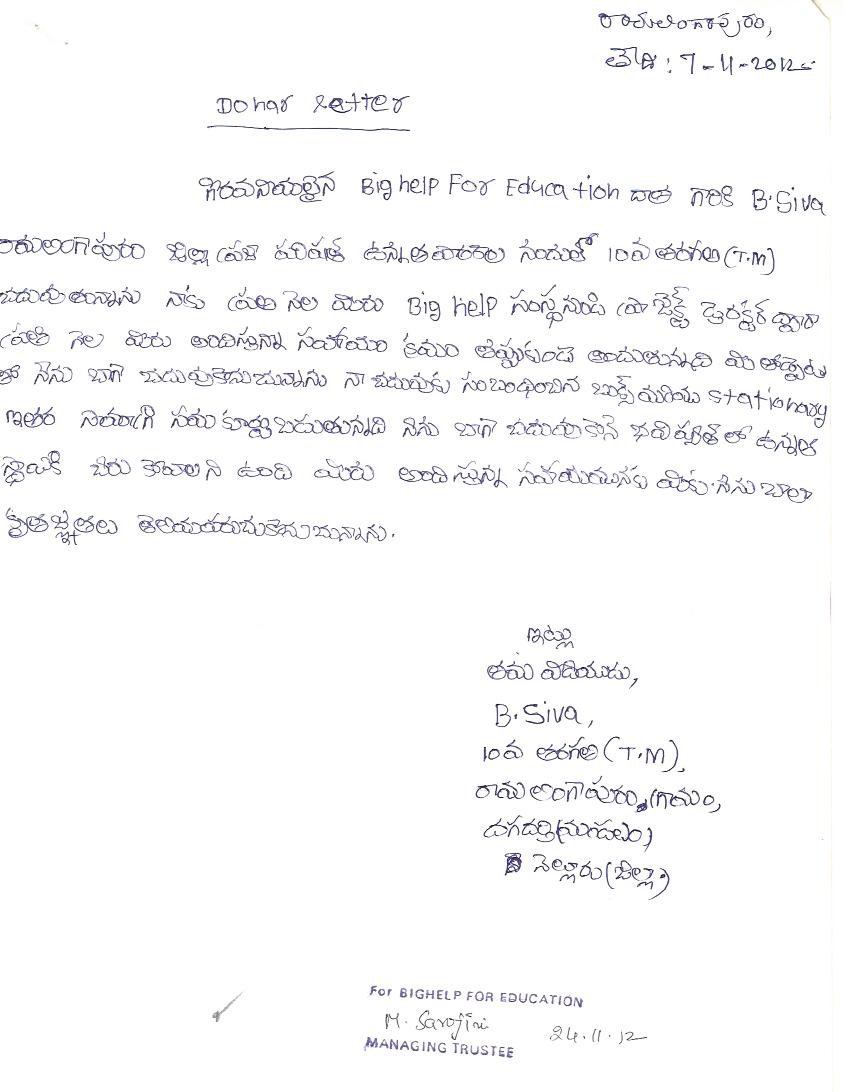 రామలింగాపురం,
తేది : 7-11-2012
Donar Letter
గౌరవనియులైన Bighelp For Education దాత గారికి B.Siva
రామలింగాపురం జిల్లా ప్రజా పరిషత్ ఉన్నత పాఠశాల నందులో 10వ తరగతి (T.M)
చదువుతున్నాను నాకు ప్రతి నెల మీరు Big help సంస్థనుండి ప్రాజెక్ట్ డైరెక్టర్ ద్వారా
ప్రతి నెల మీరు అందిస్తున్నా సహాయం క్రమం తప్పకుండా అందుతున్నది మీ తోడ్పాటు
తో నేను బాగా చదువుకొనుచున్నాను నా చదువుకు సంబంధించిన బుక్స్ మరియు stationary
ఇతర సామాగ్రి సమకూర్చబడుతున్నది నేను బాగా చదువుకొని భవిష్యత్ లో ఉన్నత
స్థాయికి చేరు కోవాలని ఉంది మీరు అందిస్తున్న సహాయమునకు మీకు నేను చాలా
కృతజ్ఞతలు తెలియపరుచుకొనుచున్నాను.
ఇట్లు
తమ విదేయుడు,
B.Siva,
10వ తరగతి (T.M),
రామలింగాపురం,(గ్రామం,
దగదర్తి(మండలం)
నెల్లూరు(జిల్లా)
For BIGHELP FOR EDUCATION
M. Sarojini 24.11.12
MANAGING TRUSTEE